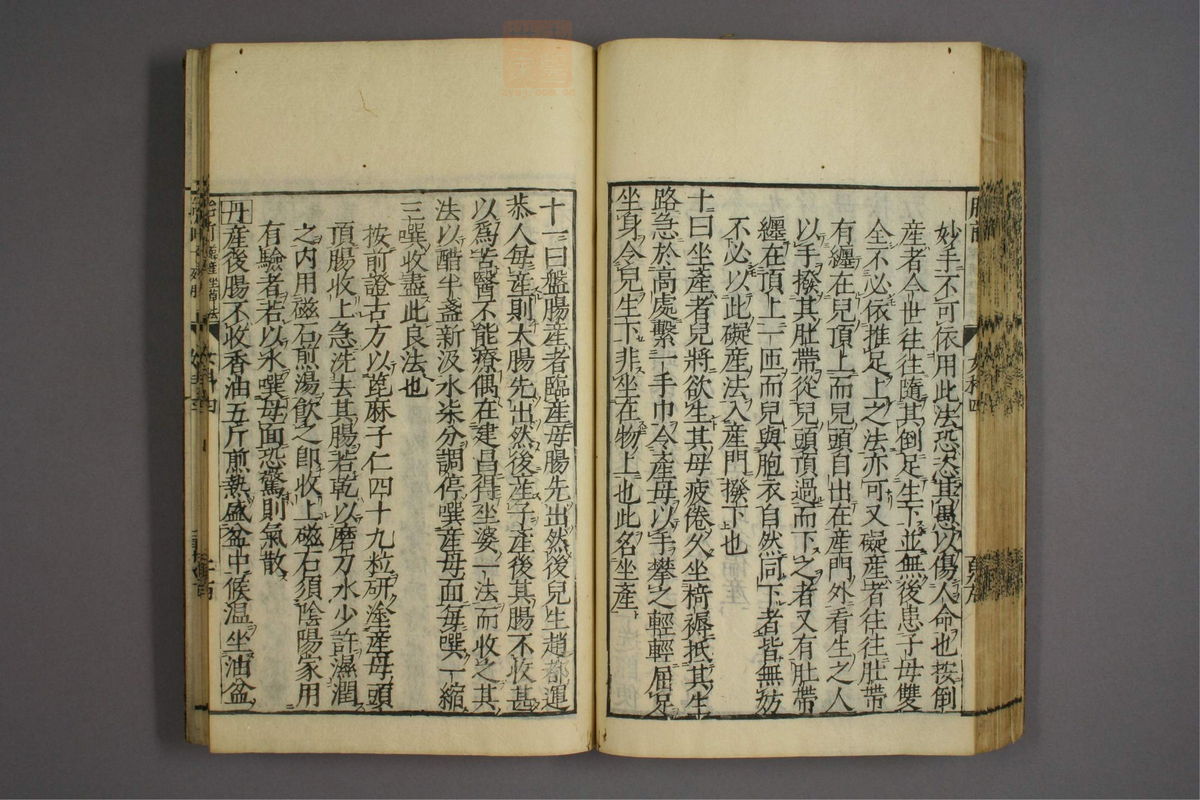 妙手不可依用此法恐愚以傷人命也按倒
産者今世往往隨其倒足生下並無後患子母雙
全不必依推足上之法亦可又礙産者往往肚帶
有纏在兒頂上而兒頭自出在産門外看生之人
以手撥其肚帶從兒頭頂過而下之者又有肚帶
纏在頂上一匝而兒與胞衣自然同下者皆無妨
不必以此礙産法入産門撥下也
十曰坐産者兒將欲生其母疲倦久坐椅褥抵其生
路急於高處繫一手巾令産母以手攀之輕輕屈足
坐身令兒生下非坐在物上也此名坐産
十一曰盤腸産者臨産母腸先出然後兒生趙都運
恭人毎産則大腸先出然後産子産後其腸不收甚
以爲苦醫不能療偶在建昌得坐婆一法而收之其
法以醋半盞新汲水柒分調停噀産母面毎噀一縮
三噀收盡此良法也
按前證古方以萞麻子仁四十九粒研塗産母頭
頂腸收上急洗去其腸若乾以磨刀水少許濕潤
之内用磁石煎湯飲之即收上磁石須陰陽家用
有驗者若以水噀母面恐驚則氣散
丹産後腸不收香油五斤煎熱盛盆中候温坐油盆